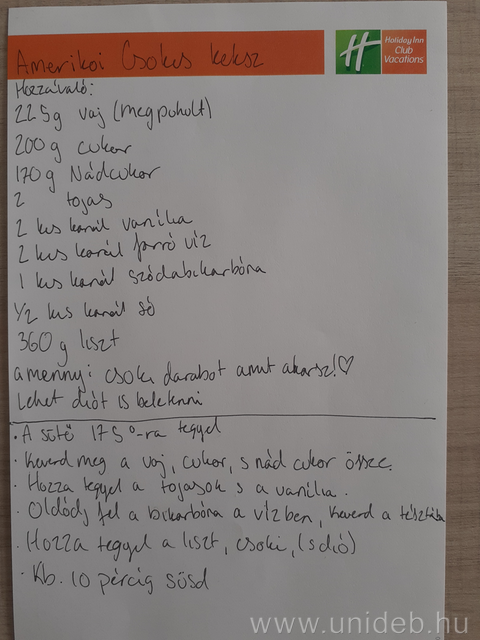 Amerikoi Csokis keksz
Holiday Inn
Club
Vacations
Hozzávaló:
225g vaj (megpuholt)
200g cukor
170g Nádcukor
2 tojas
2 kis kanál vanilia
2 kis kanál forró víz
1 kis kanál szódabikarbóna
1/2 kis kanál só
360 g liszt
amennyi csoki darabot amit akarsz!♡
Lehet diót is beletenni
• A sütő 175°-ra tegyel
• Keverd meg a vaj, cukor, s nád cukor össze.
• Hozza tegyel a tojasok s a vanilia.
• Oldódj fel a bikarbóna a vízben, keverd a tésztába
• Hozza tegyel a liszt, csoki, (s dió)
• Kb. 10 pércig süsd
www.unideb.hu